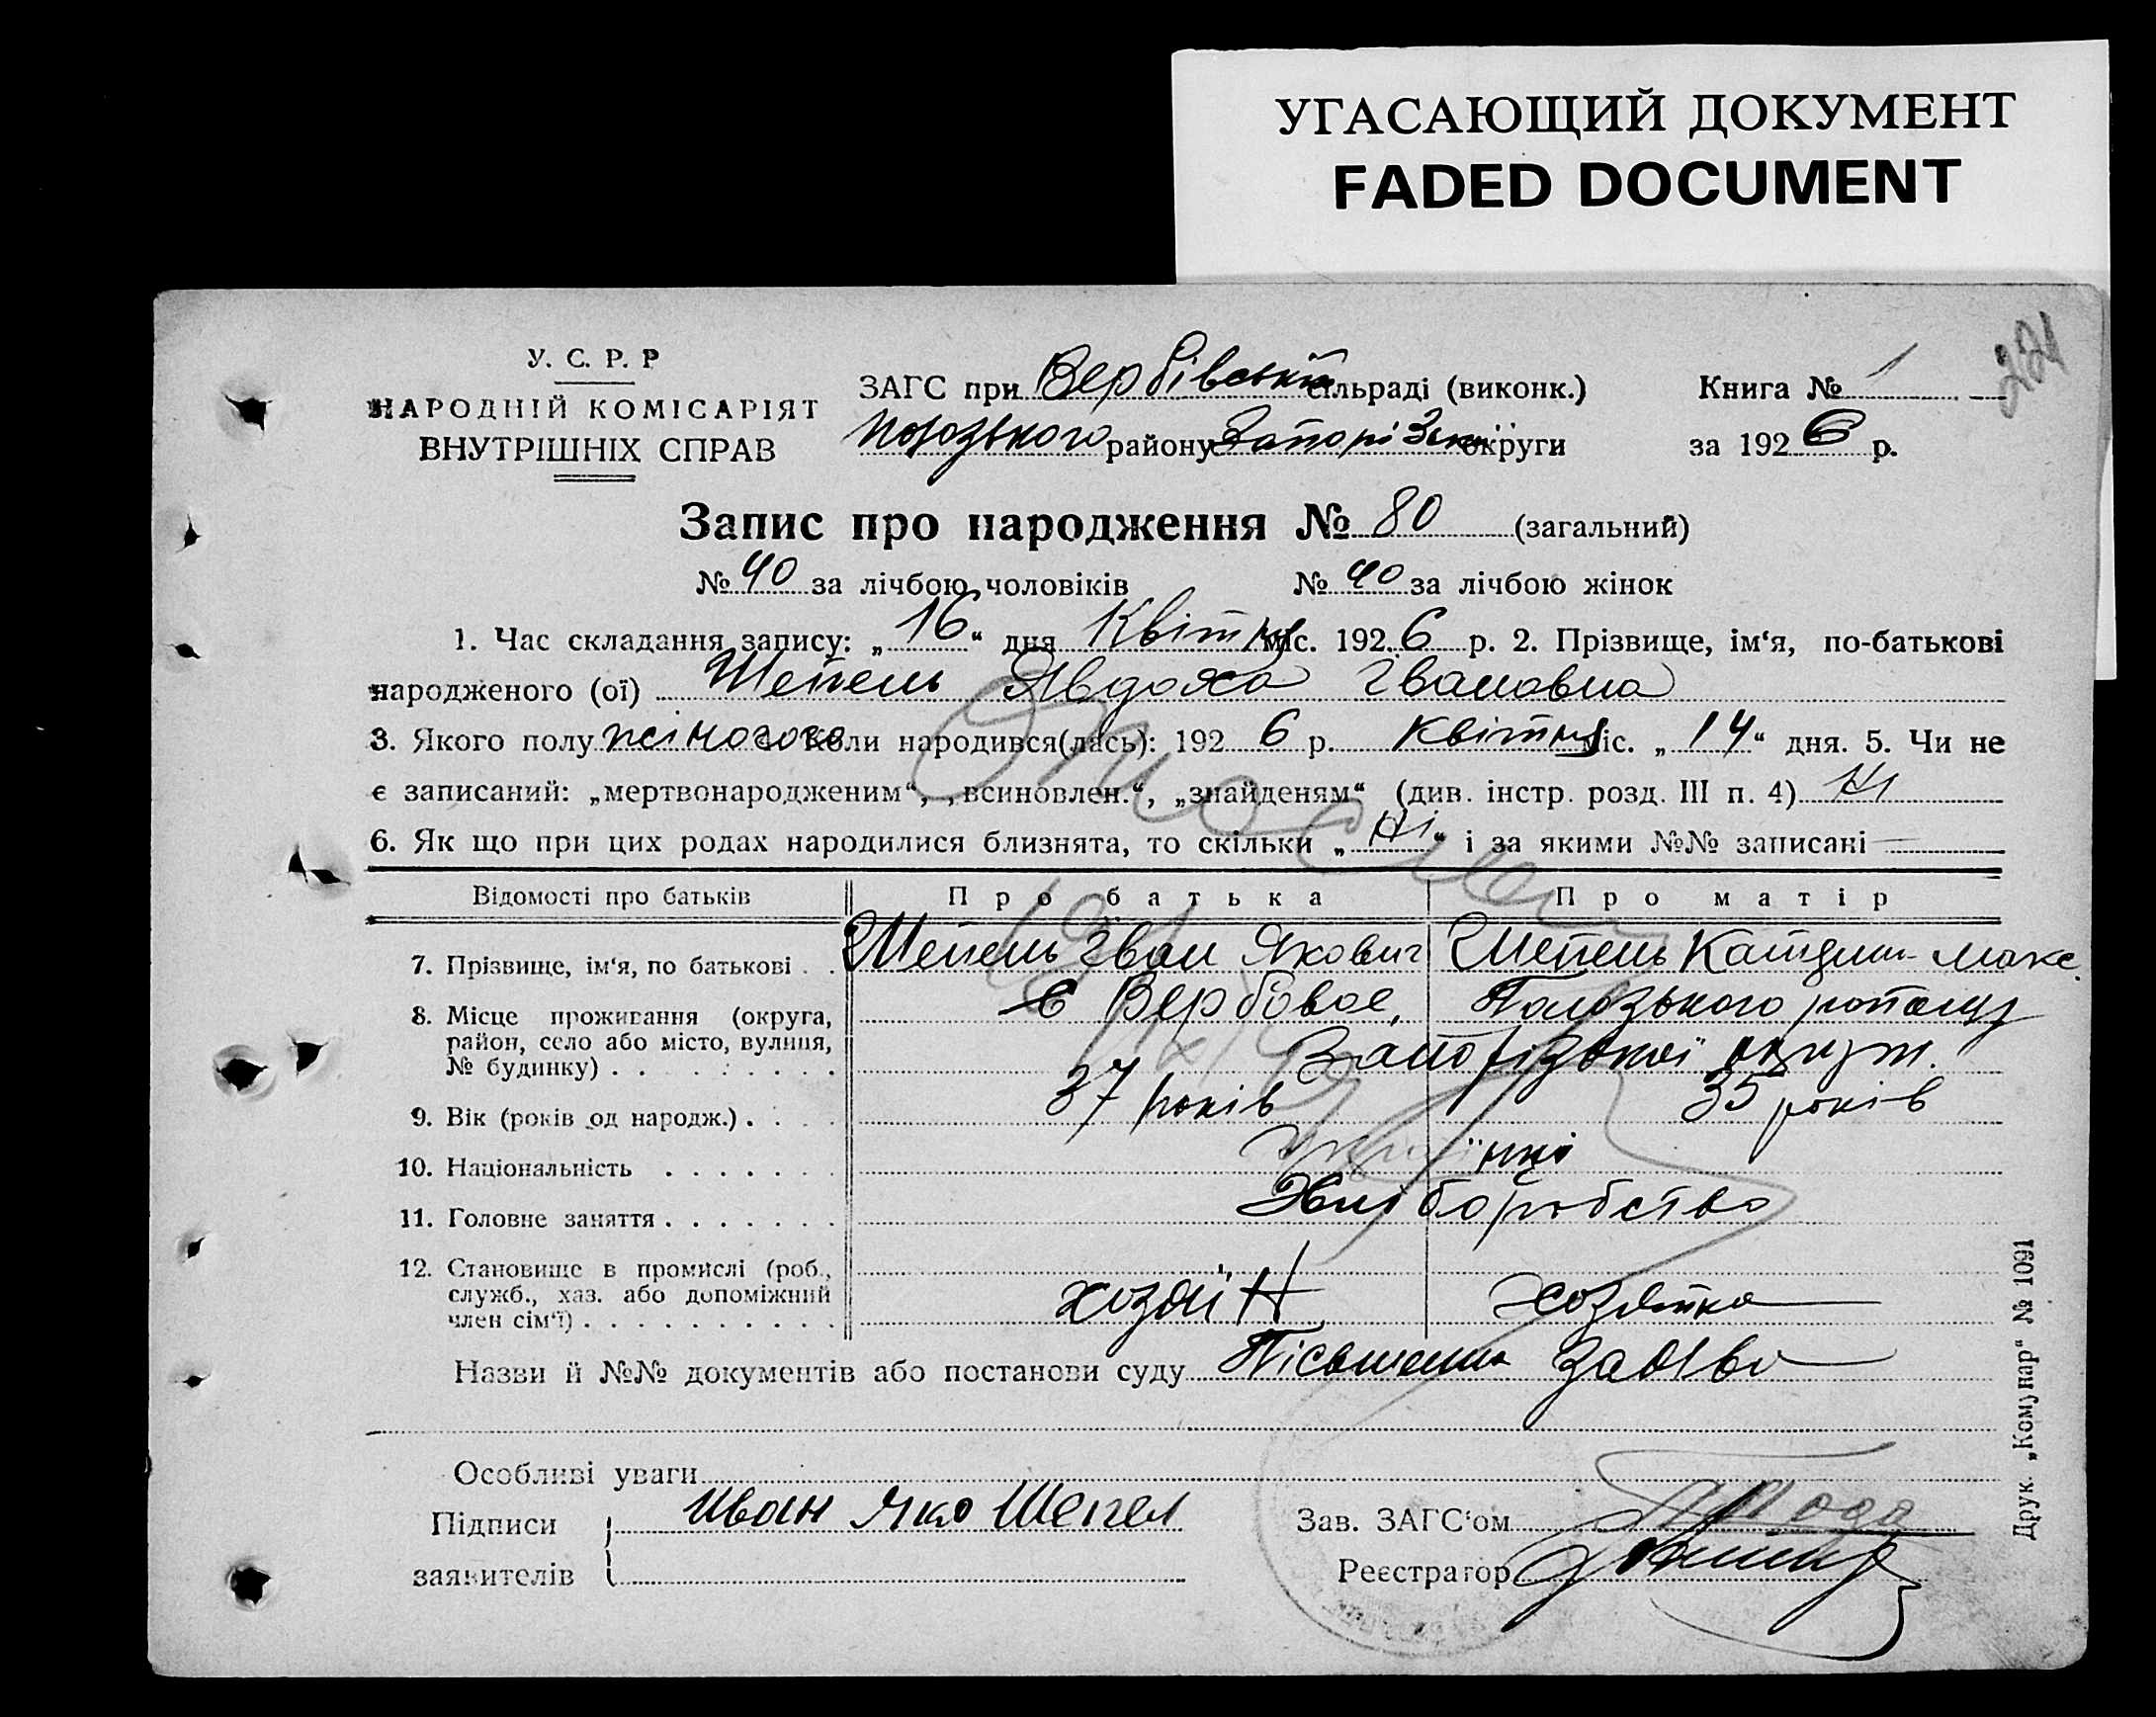 УГАСАЮЩИЙ ДОКУМЕНТ
FADED DOCUMENT
221
У. С. Р. Р
НАРОДНІЙ КОМІСАРІЯТ
ВНУТРІШНІХ СПРАВ
ЗАГС при Вербівській сільраді (виконк.)
Пологського району Запорізьк. округи
Книга № 1
за 1926 р.
Запис про народження № 80 (загальний)
№ 40 за лічбою чоловіків № 40 за лічбою жінок
1. Час складання запису: „16“ дня Квітня міс. 1926 р. 2. Прізвище, ім‘я, по-батькові
народженого (ої) Шепель Явдоха Івановна
3. Якого полу жіночого Коли народився(лась): 1926 р. Квітня міс. „14“ дня. 5. Чи не
є записаний: „мертвонародженим“, „всиновлен.“, „знайденям“ (див. інстр. розд. III п. 4) Ні
6. Як що при цих родах народилися близнята, то скільки „Ні“ і за якими №№ записані —
Відомості про батьків Про батька Про матір
7. Прізвище, ім‘я, по батькові . . Шепель Іван Якович Шепель Катерин Макс.
8. Місце проживання (округа, С Вербовое, Пологського
район, село або місто, вулиця,
№ будинку) . . . . . . . . . Запорізької округи
9. Вік (років од народж.) . . . . 37 років 35 років
10. Національність . . . . . . . Українці
11. Головне заняття . . . . . . . Хліборобство
12. Становище в промислі (роб.,
служб., хаз. або допоміжний
член сім‘ї) . . . . . . . . . . хозяїн хозяйка
Назви й №№ документів або постанови суду Пісьменна заява
Особливі уваги
Підписи Иван Яко Шепел
заявителів
Зав. ЗАГС‘ом
Реєстратор
Друк. „Комунар“ № 1091